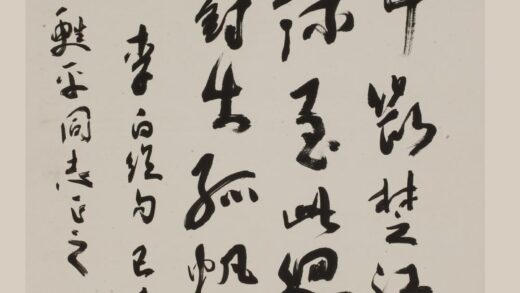 中断楚江
流至此迴
對出孤帆
李白绝句 己
甦平同志正之